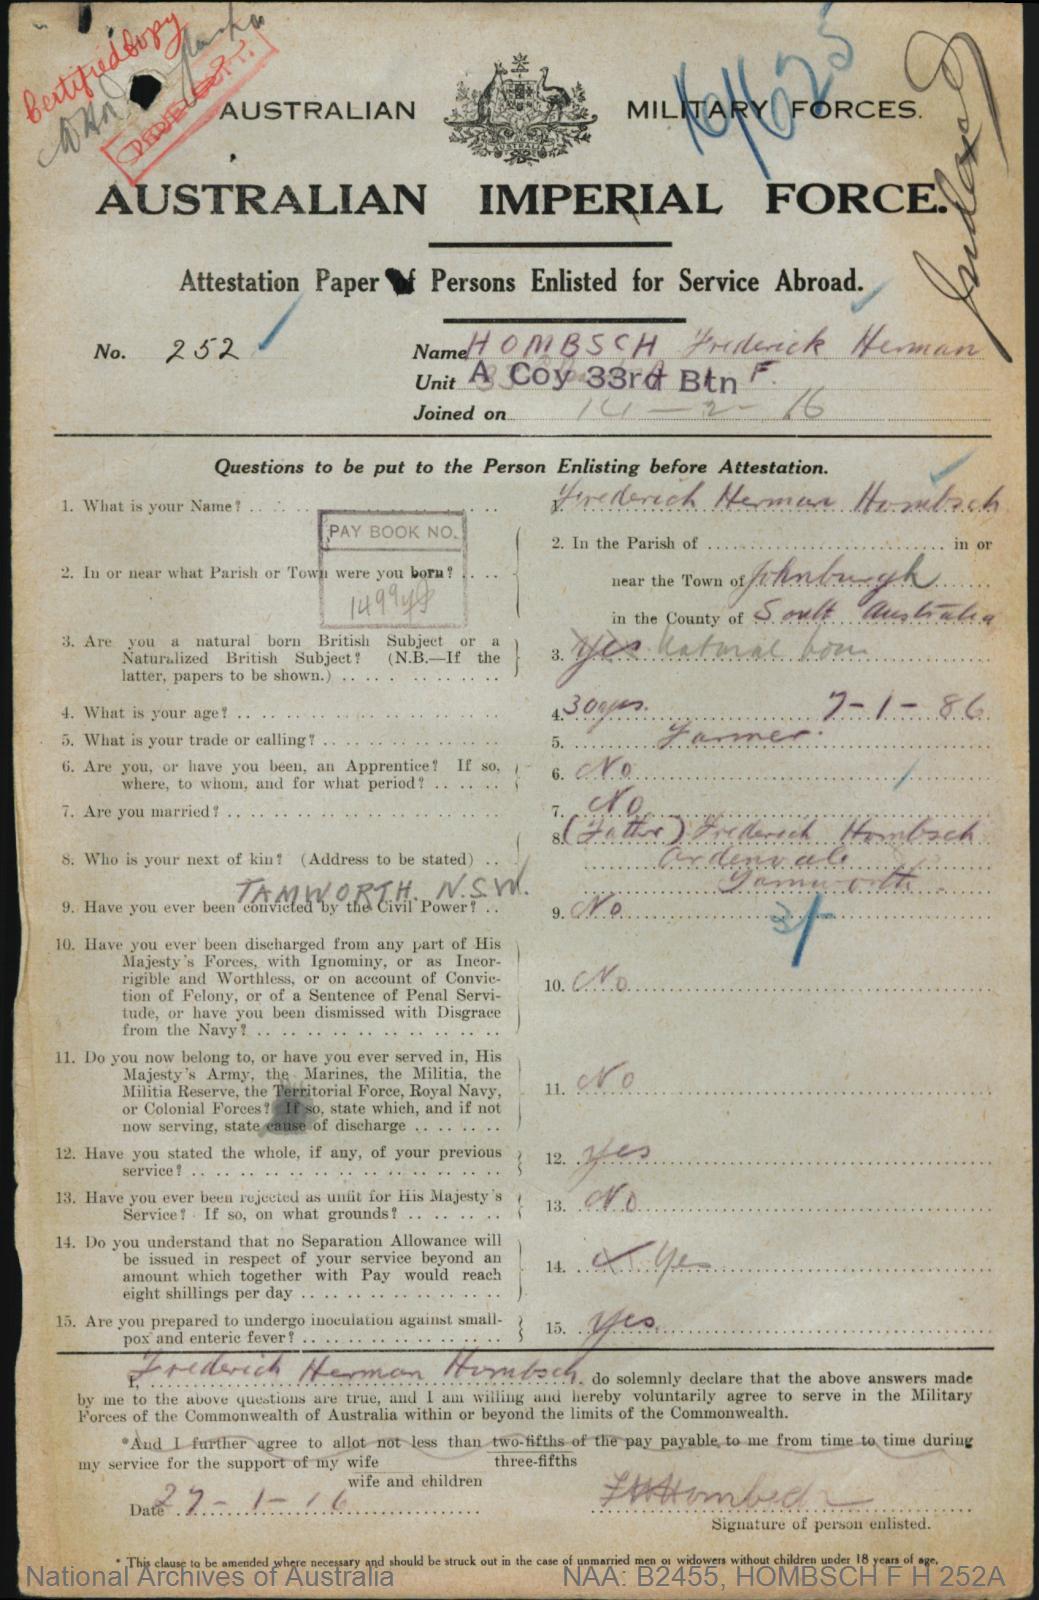 Certified Copy
AUSTRALIAN MILITARY FORCES.
16/1625
Indexed
AUSTRALIAN IMPERIAL FORCE.
Attestation Paper of Persons Enlisted for Service Abroad.
No. 252
Name HOMBSCH Frederick Herman
Unit A Coy 33rd Btn F.
Joined on 14-2-16
Questions to be put to the Person Enlisting before Attestation.
1. What is your Name? 1. Frederich Herman Hombsch
PAY BOOK NO.
2. In or near what Parish or Town were you born?
2. In the Parish of in or
near the Town of Johnburgh
in the County of South Australia
3. Are you a natural born British Subject or a
Naturalized British Subject? (N.B.—If the
latter, papers to be shown.)
3. yes Natural born
4. What is your age? 4. 30 yrs. 7-1-86
5. What is your trade or calling? 5. Farmer.
6. Are you, or have you been, an Apprentice? If so,
where, to whom, and for what period?
6. No
7. Are you married? 7. No
8. Who is your next of kin? (Address to be stated)
8. (Father) Frederich Hombsch
Ardenvale
Tamworth.
TAMWORTH. N.S.W.
9. Have you ever been convicted by the Civil Power? 9. No
3/-
10. Have you ever been discharged from any part of His
Majesty's Forces, with Ignominy, or as Incor-
rigible and Worthless, or on account of Convic-
tion of Felony, or of a Sentence of Penal Servi-
tude, or have you been dismissed with Disgrace
from the Navy?
10. No
11. Do you now belong to, or have you ever served in, His
Majesty's Army, the Marines, the Militia, the
Militia Reserve, the Territorial Force, Royal Navy,
or Colonial Forces? If so, state which, and if not
now serving, state cause of discharge
11. No
12. Have you stated the whole, if any, of your previous
service?
12. yes
13. Have you ever been rejected as unfit for His Majesty's
Service? If so, on what grounds?
13. No
14. Do you understand that no Separation Allowance will
be issued in respect of your service beyond an
amount which together with Pay would reach
eight shillings per day
14. Yes
15. Are you prepared to undergo inoculation against small-
pox and enteric fever?
15. yes.
I, Frederich Herman Hombsch. do solemnly declare that the above answers made
by me to the above questions are true, and I am willing and hereby voluntarily agree to serve in the Military
Forces of the Commonwealth of Australia within or beyond the limits of the Commonwealth.
*And I further agree to allot not less than two-fifths of the pay payable to me from time to time during
my service for the support of my wife three-fifths
wife and children
Date 27-1-16
F H Hombsch
Signature of person enlisted.
* This clause to be amended where necessary and should be struck out in the case of unmarried men or widowers without children under 18 years of age.
National Archives of Australia NAA: B2455, HOMBSCH F H 252A